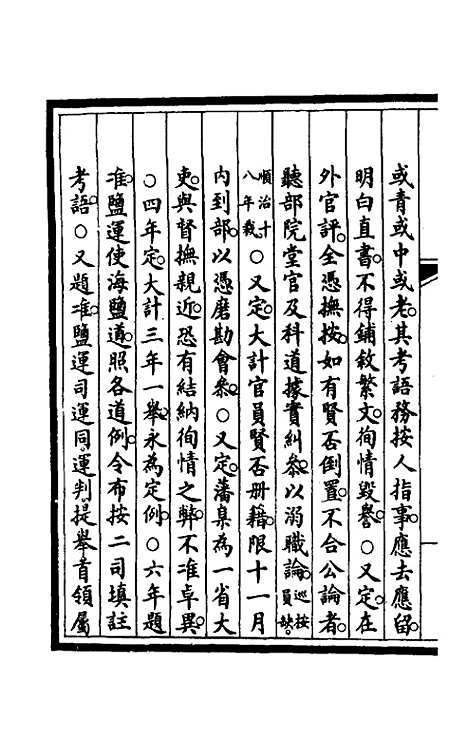 或青或中或老其考語務按人指事應去應留
明白直書不得鋪敘繁文徇情毀譽○又定在
外官評全憑撫按如有賢否倒置不合公論者
聽部院堂官及科道據實糾參以溺職論巡按員缺
順治十八年裁○又定大計官員賢否冊籍限十一月
內到部以憑磨勘會參○又定藩臬為一省大
吏與督撫親近恐有結納徇情之弊不准卓異
○四年定大計三年一舉永為定例○六年題
准鹽運使海鹽道照各道例令布按二司填註
考語○又題准鹽運司運同運判提舉首領屬